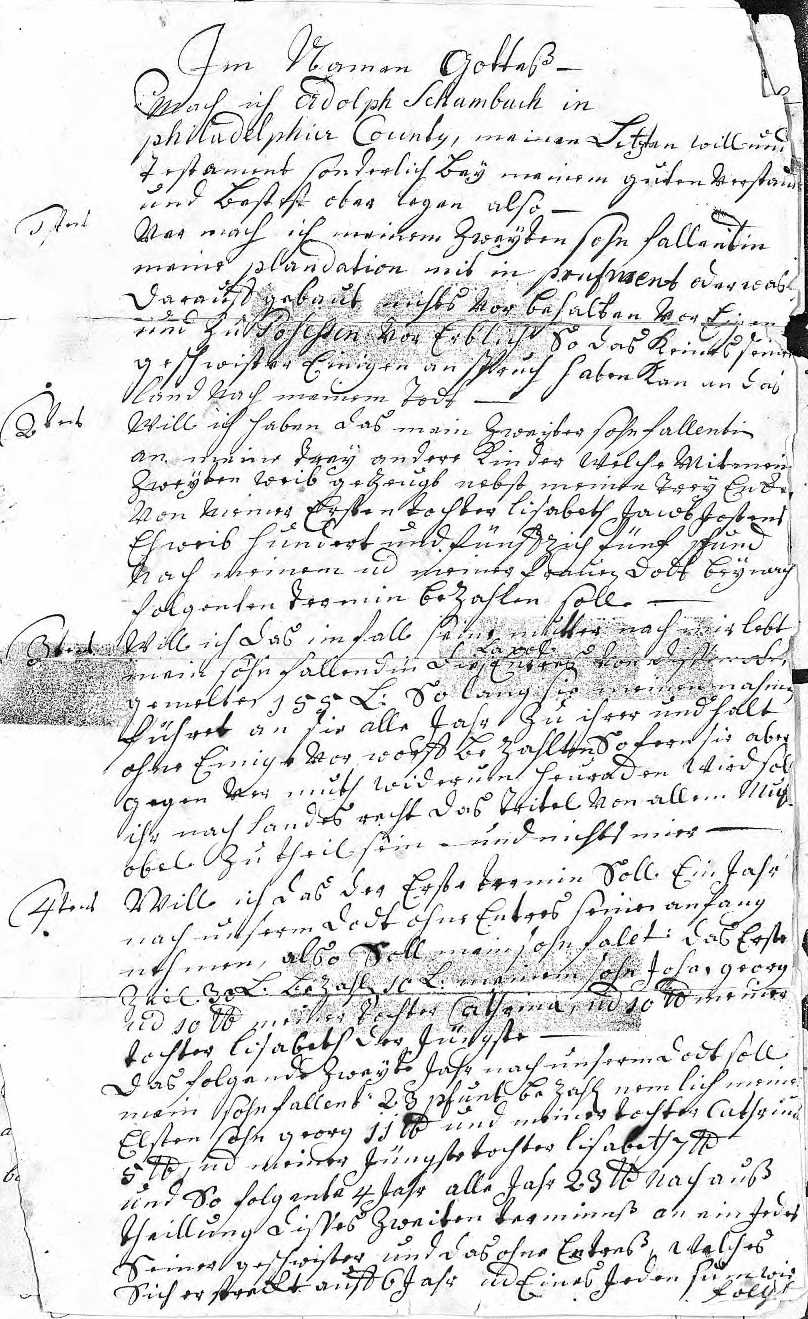 Im Namen Gotteß —
Mach ich Adolph Schambach in
philadelphier County, meinen Letzten will und
Testament sonderlich bey meinem guten verstand
und Best ober legen also —
1stens
Ver mach ich meinem Zweyten sohn fallentin
meine plandation mit in profment oder was
darauff gebaut nichts vor behalten vor Eigen
und Zu Posessen vor Erblich So das Keines seiner
geschwister Einigen an spruch haben Kan an das
land Nach meinem Todt —
2tens
Will ich haben das mein Zweyter sohn fallentin
an meine drey andere Kinder Welche Mit mein
Zweyten weib gezeugt nebst meinen drey
Von meiner Ersten tochter lisabeth Jacob Josten
Ehweib hundert und fünffzich fünf pfund
Nach meinem ud meiner frauen dott bey nach
folgenten termin bezahlen soll —
3tens
Will ich das im fall seine mutter nach mir lebt
mein sohn fallendin die Entreß von
gemelter 155 L: So lang sie meinen nahmen
führet an sie alle Jahr Zu ihrer und halt
ohne Einige vor worff bezahlen So fern sie aber
gegen ver muth widerum heuraden Wird soll
ihr nach landes recht das tritel von allem
obel Zu theil sein — und nichts mier —
4tens
Will ich das der Erste termin Soll Ein Jahr
nach unserm dodt ohne Entres seinen anfang
nehmen, also Soll mein sohn falet: das Erste
Ziel 30 L: bezahl 10 L: meinem sohn Joha: georg
ud 10 lb meiner tochter Cathrina, ud 10 lb meiner
tochter lisabeth der Jüngste —
das folgende Zweyte Jahr nach unserm dodt soll
mein sohn fallent: 23 pfunt bezahl nemlich meinem
Elsten sohn georg 11 lb und meiner tochter Cathrina
5 lb, ud meiner Jüngste tochter lisabeth 7 lb
und So folgente 4 Jahr alle Jahr 23 lb Nach auß
theillung disses Zweiten terminß an ein Jedes
Seiner geschwister und das ohne Entreß, Welches
Sich erstreckt auff 6 Jahr ud Eines Jeden sum wie
folgt